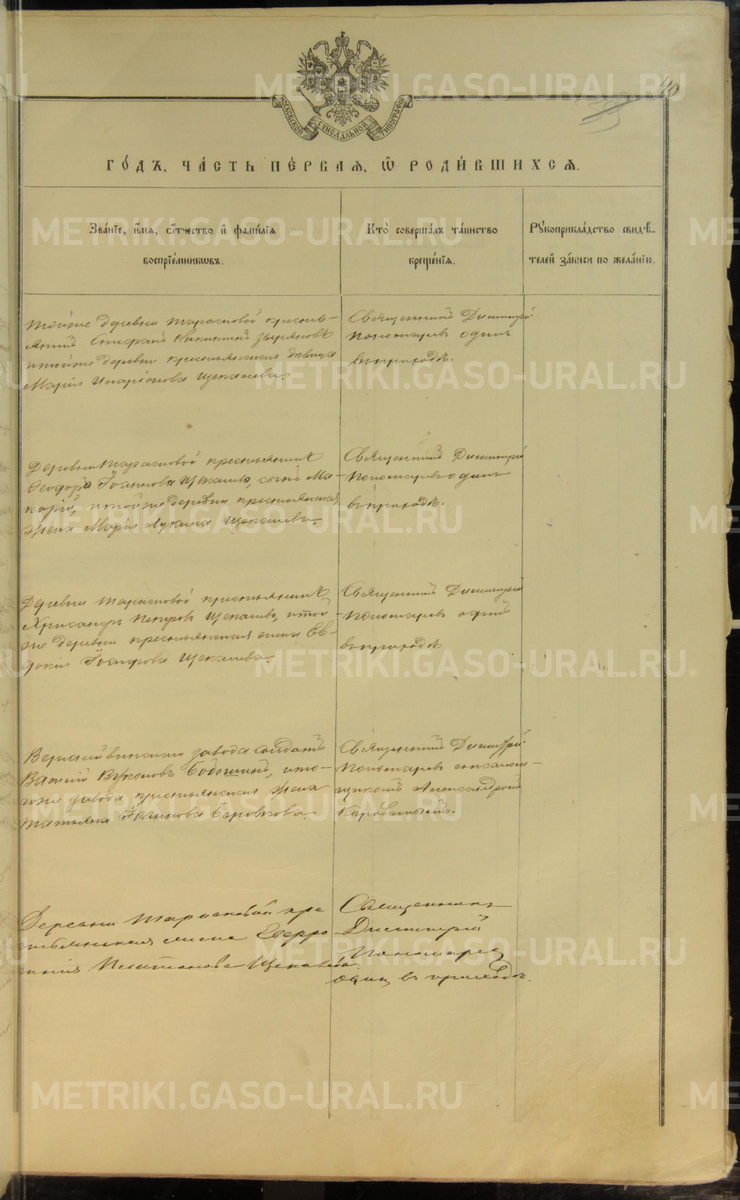 МОСКОВСКОЙ СѴНОДАЛЬНОЙ ТИПОГРАФІИ
40
ГО́ДЪ, ЧА́СТЬ ПЕ́РВАЯ, Ѽ РОДИ́ВШИХСѦ.
Зва́нїе, и҆́мя, ѻ҆́тчество и҆ фами́лїѧ
воспрїе́мникѡвъ.
Кто̀ соверша́лъ та́инство
креще́нїѧ.
Рꙋкоприкла́дство свидѣ́-
телей за́писи по жела́нїю.
тойже деревни Тарасковой кресть-
янинъ
тойже деревни крестьянская девица
Марія Иларіонова Щекалева.
Священникъ Димитрій
Пономаревъ одинъ
въ приходѣ.
Деревни Тарасковой крестьянина
Ѳеодора Іоаннова Щекалева, сынъ Ма-
карій, и тойже деревни крестьянская
жена Марія Лукина Щекалева.
Священникъ Димитрій
Пономаревъ одинъ
въ приходѣ.
Деревни Тарасковой крестьянинъ
Хрисанфъ Петровъ Щекалевъ, и той-
же деревни крестьянская жена Ев-
докія Іосифова Щекалева.
Священникъ Димитрій
Пономаревъ одинъ
въ приходѣ.
завода солдатъ
Василій и то-
гоже завода крестьянская жена
Татьяна Іоаннова Боровкова.
Священникъ Димитрій
Пономаревъ съ псалом-
щикомъ Александромъ
Деревни Тарасковой кре
стьянская жена Евфро
синія Платонова Щекалева.
Священникъ
Димитрій
Пономаревъ
один в приходе.
METRIKI.GASO-URAL.RU